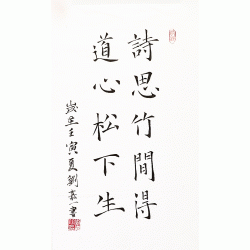 詩思竹間得
道心松下生
歲在壬寅夏劉嘉書